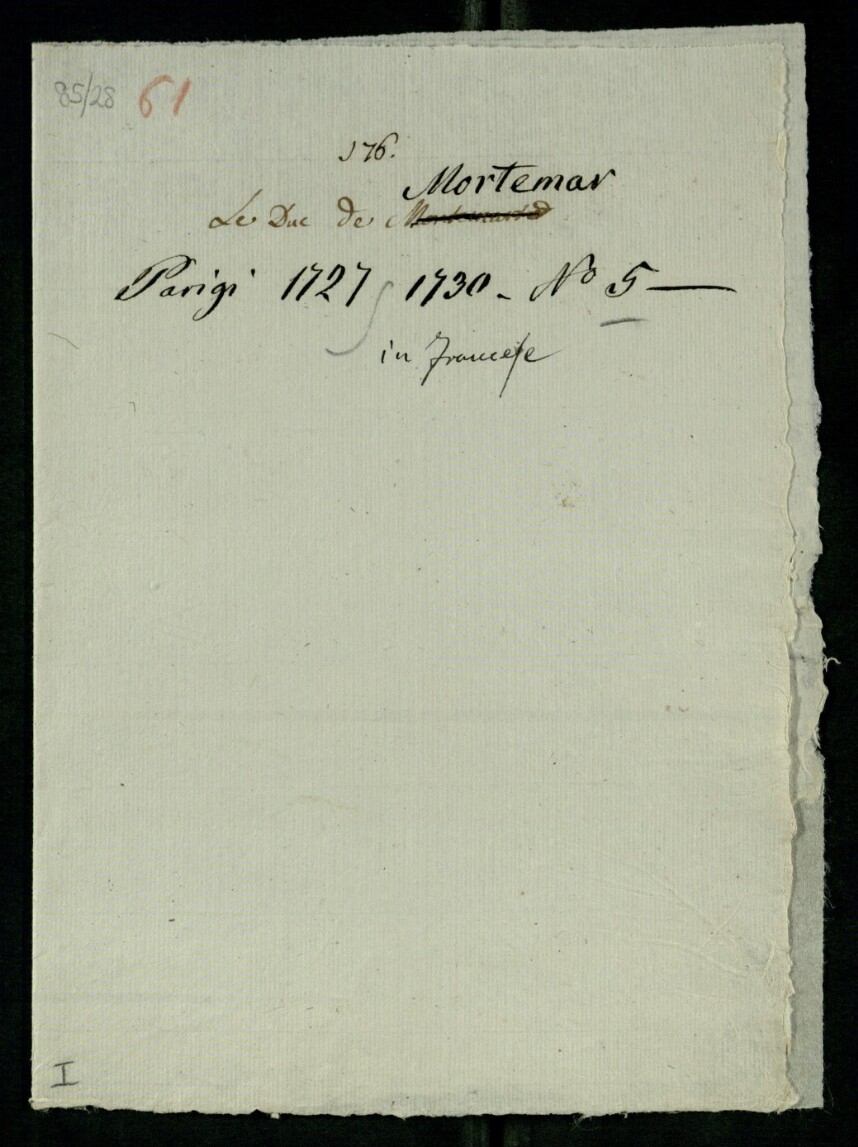 85/28 61
176.
Mortemar
Le Duc de
Parigi 1727 1730 - No 5 —
in Francese
I